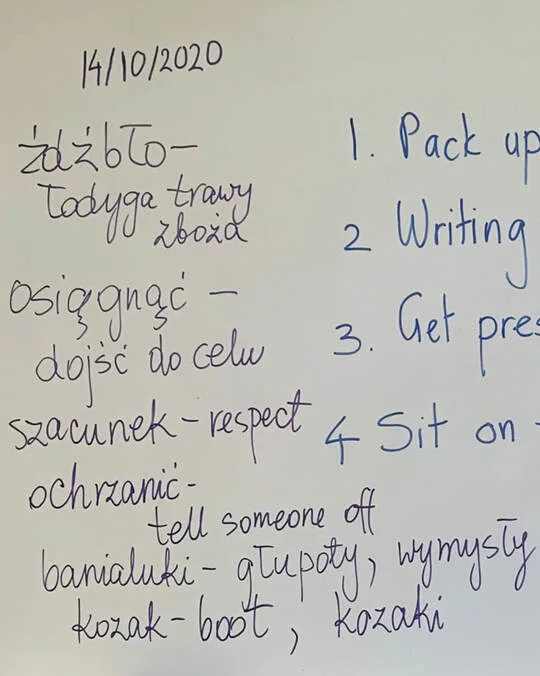 14/10/2020
źdźbło -
łodyga trawy
zboża
osięgnąć -
dojść do celu
szacunek - respect
ochrzanić -
tell someone off
banialuki - głupoty, wymysły
kozak - boot, kozaki
1. Pack up
2 Writing
3. Get pres
4 Sit on